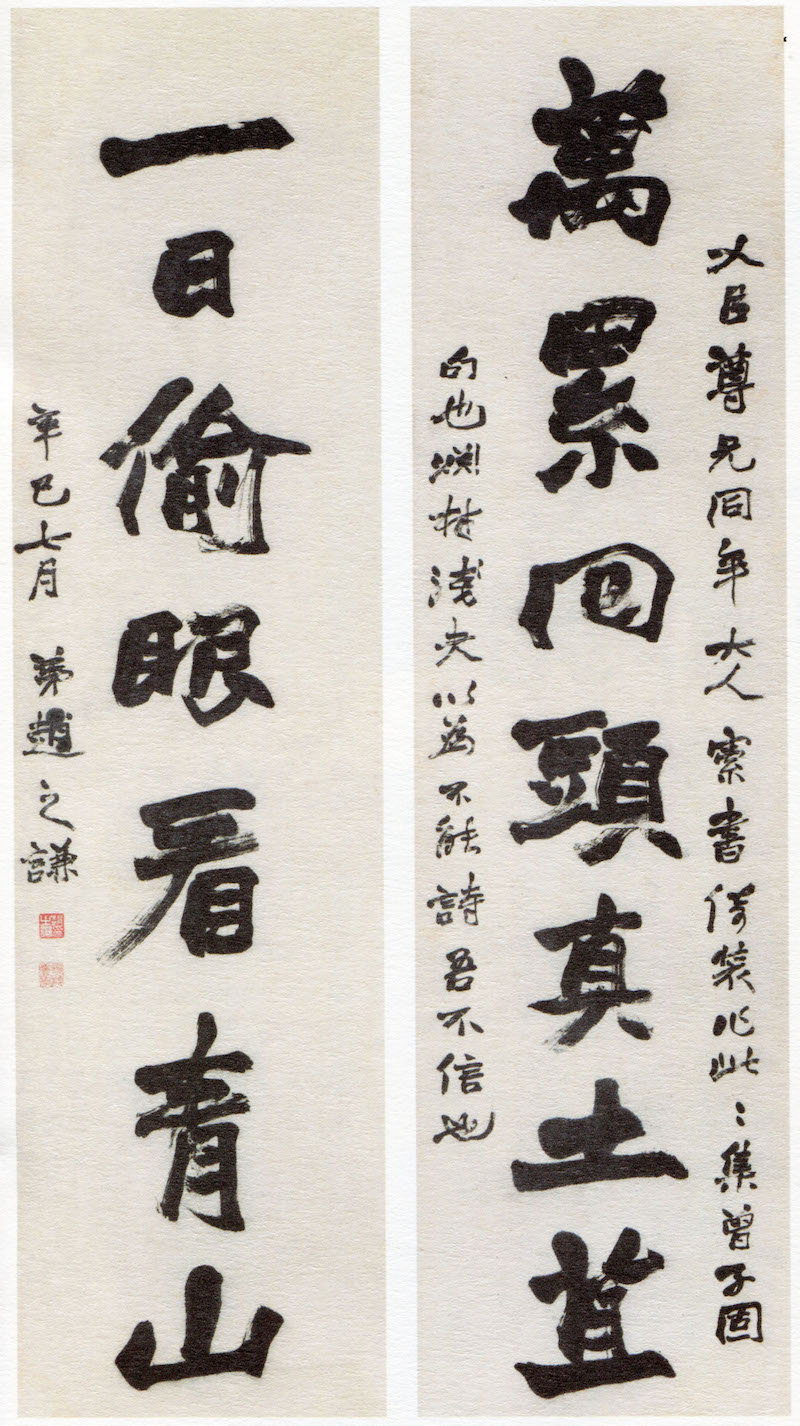 臣尊兄同年大人索書倚裝作此〻集曾子固
萬累回頭真土苴
句也材淺夫以為不能詩吾不信也
一日偷眼看青山
辛巳七月 弟趙之謙